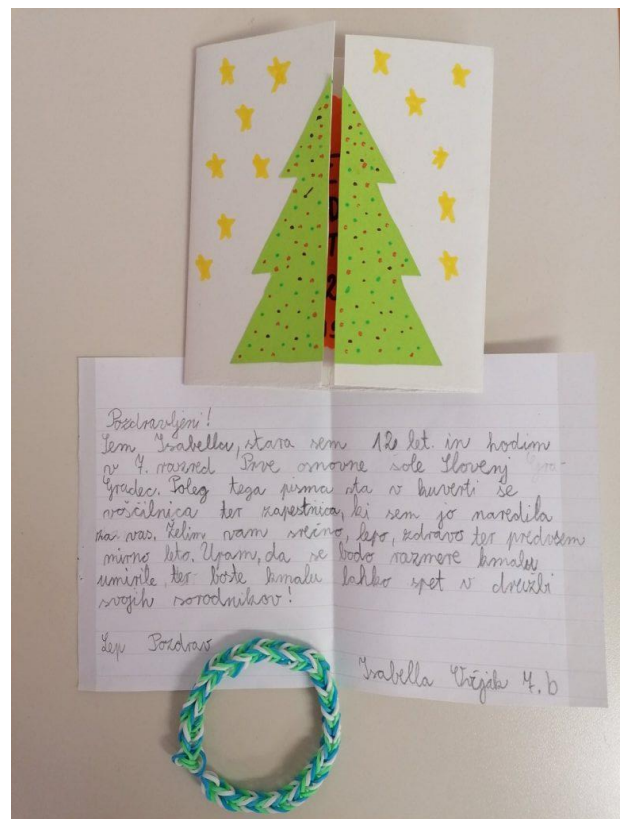 Pozdravljeni!
Sem Isabella, stara sem 12 let. in hodim
v 7. razred Prve osnovne šole Slovenj Gra-
Gradec. Poleg tega pisma sta v kuverti še
voščilnica ter zapestnica, ki sem jo naredila
za vas. Želim vam srečno, lepo, zdravo ter predvsem
mirno leto. Upam, da se bodo razmere kmalu
umirile, ter boste kmalu lahko spet v družbi
svojih sorodnikov!
Lep Pozdrav
Isabella 7. b